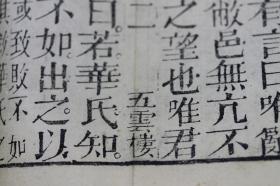 有言曰唯亂
敝邑無亢不
之望也唯君
二
五雲樓
曰若華氏知
不如出之以
或致敗不如